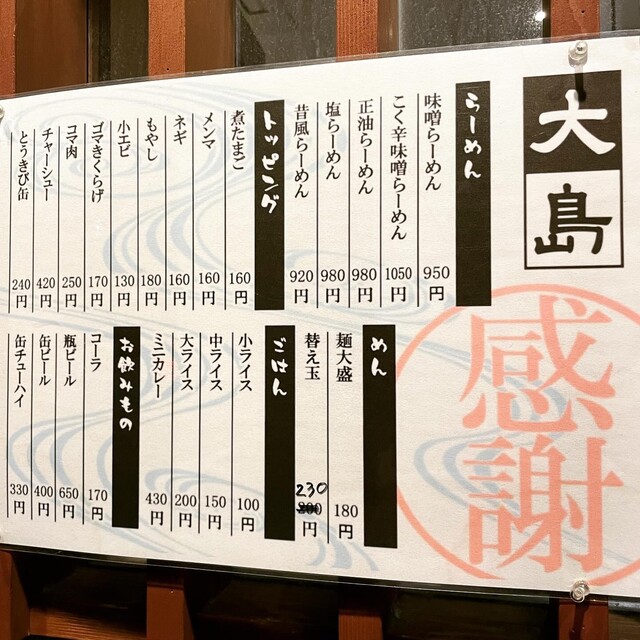 大島
らーめん
味噌らーめん 950円
こく辛味噌らーめん 1050円
正油らーめん 980円
塩らーめん 980円
昔風らーめん 920円
トッピング
煮たまご 160円
メンマ 160円
ネギ 160円
もやし 180円
小エビ 130円
ゴマきくらげ 170円
コマ肉 250円
チャーシュー 420円
とうきび缶 240円
めん
麺大盛 180円
替え玉 230 200円
ごはん
小ライス 100円
中ライス 150円
大ライス 200円
ミニカレー 430円
お飲みもの
コーラ 170円
瓶ビール 650円
缶ビール 400円
缶チューハイ 330円
感謝